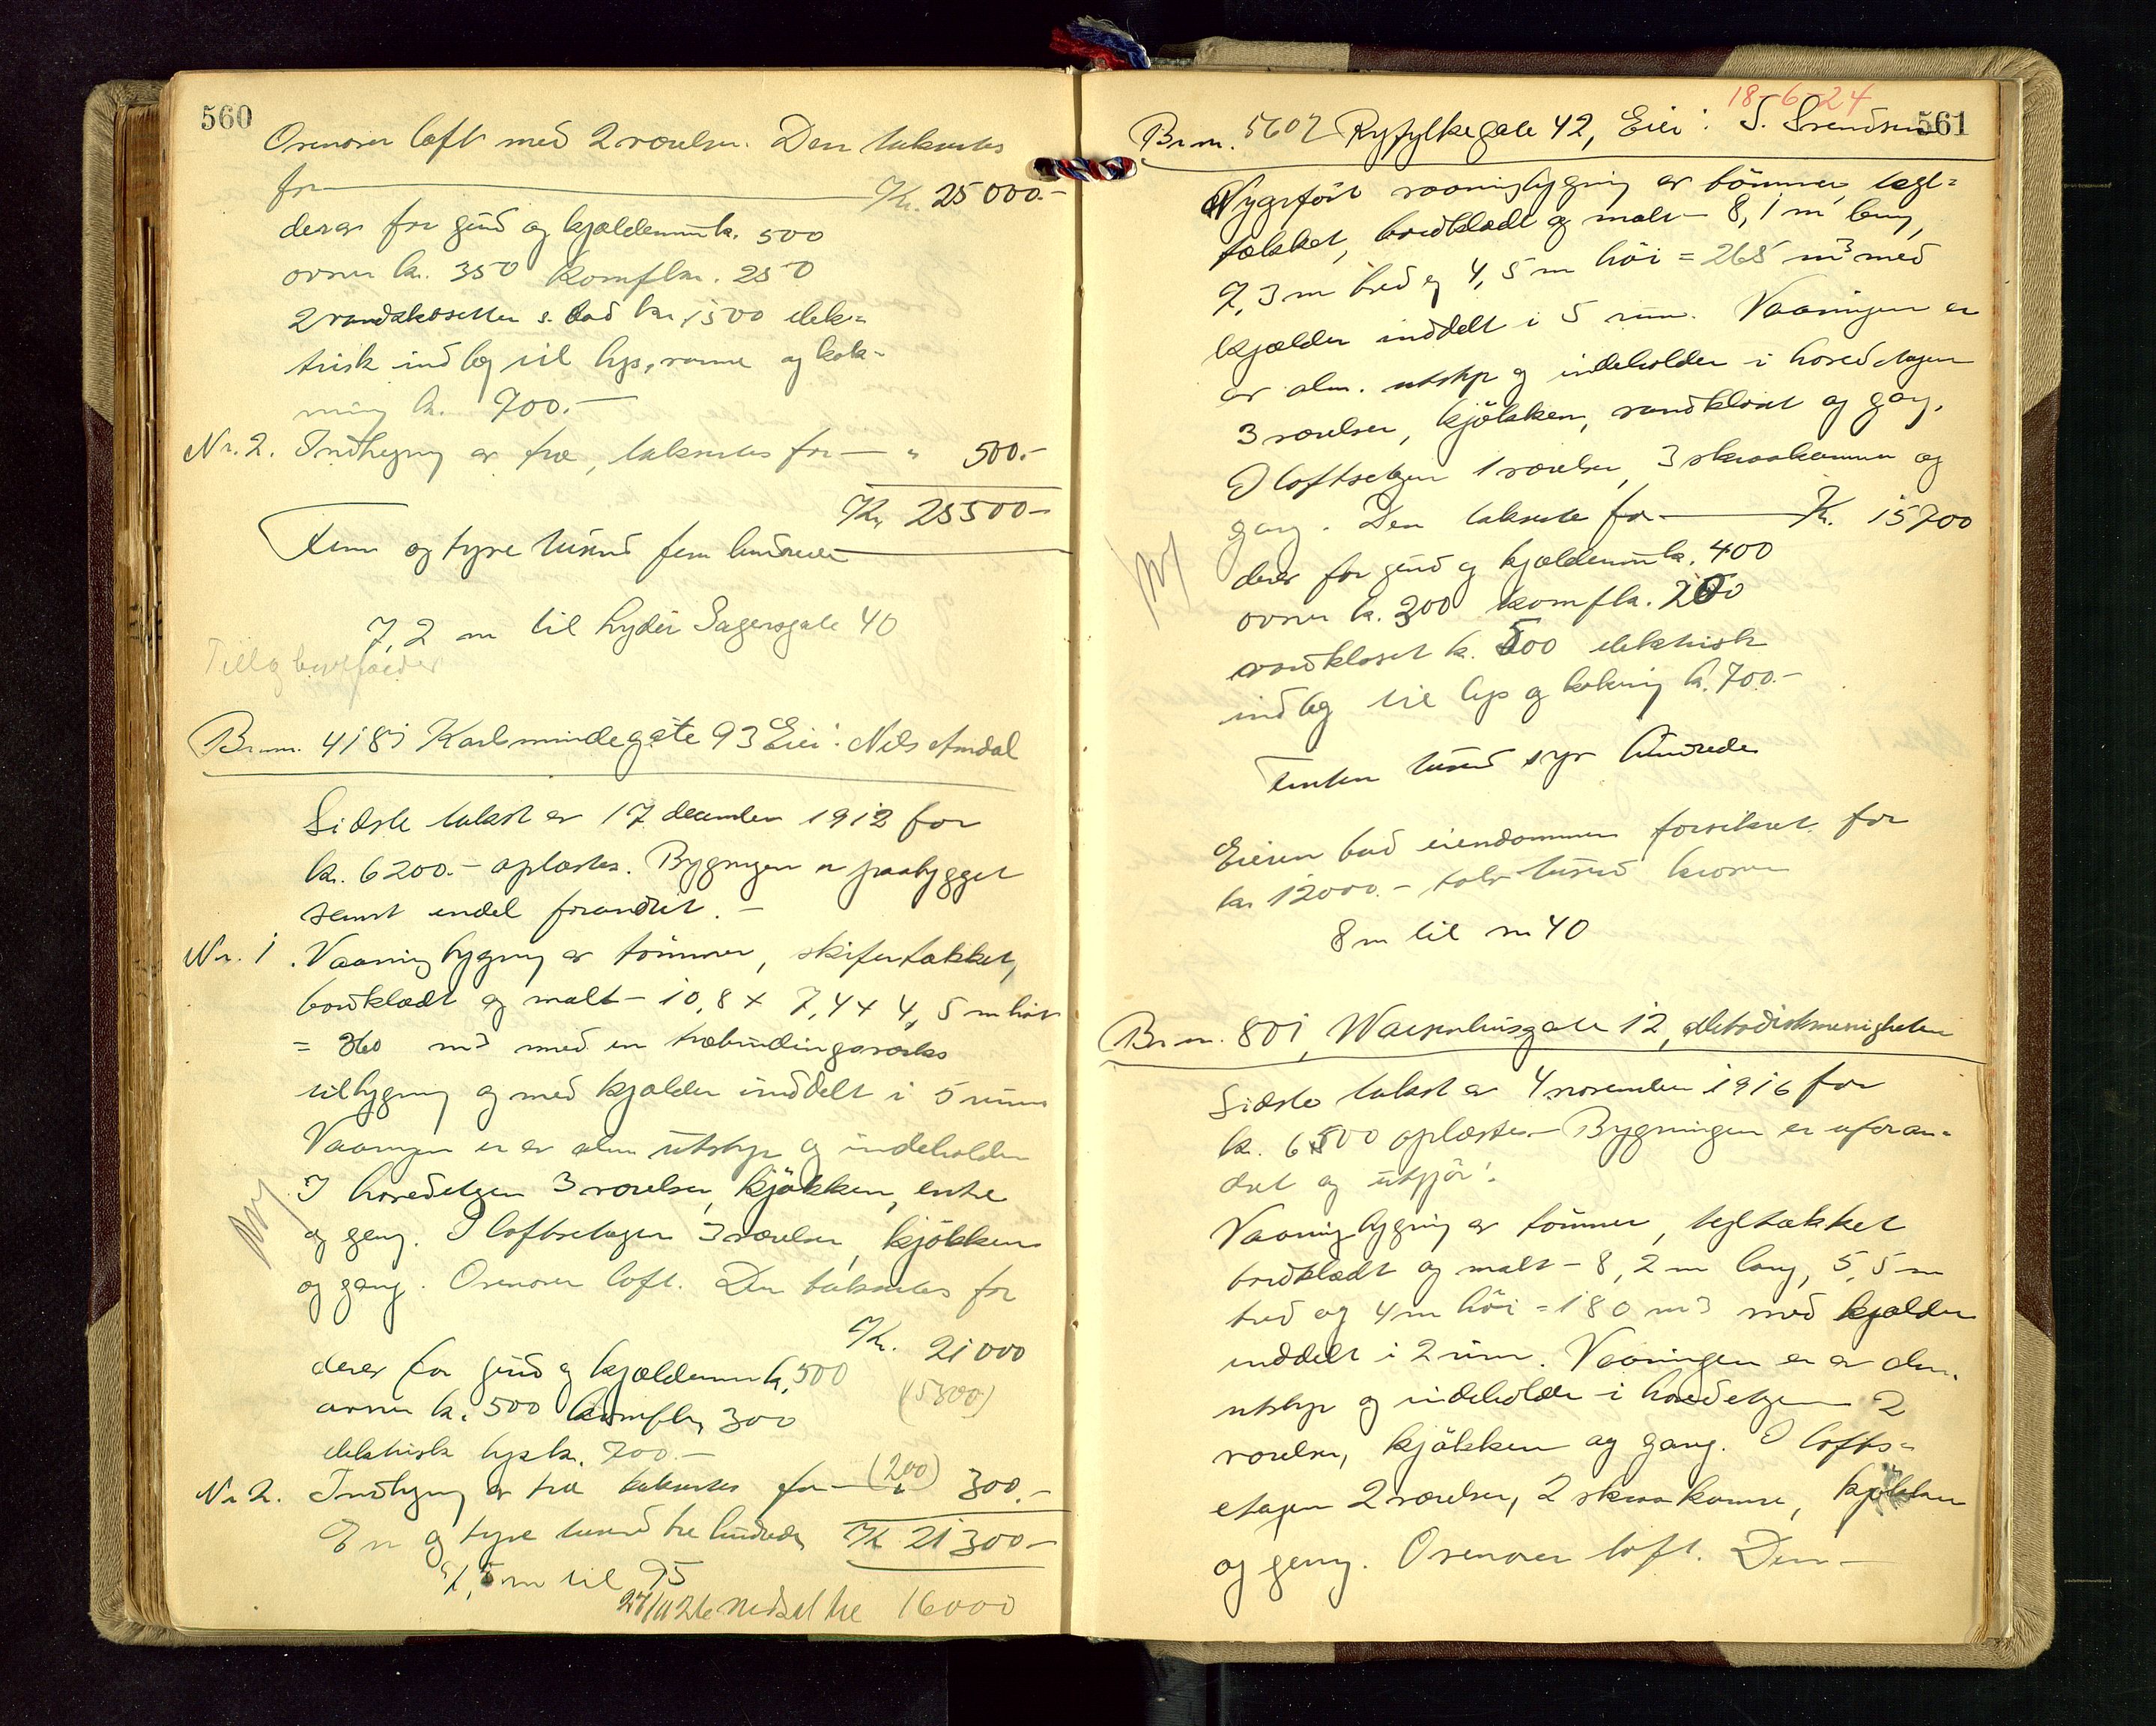 560
Ovenover loft med 2 værelser. Den takseres
for Kr. 25000.-
derav for grund og kjældermur kr. 500
ovner kr. 350 Komfl kr. 250
2 vandklosetter s. bad kr. 1500 elek=
trisk indlæg til lys, varme og kok-
ning kr. 700.-
Nr. 2. Indhegning av træ, takseres for - " 500.-
Kr. 25500-
Fem og tyve tusind fem hundrede
7,2 m til Lyder Sagensgate 40
Br.nr. 4181 Karlsmindegate 93 Eier: Nils Amdal
Sidste takst er 17 december 1912 for
kr. 6200.- oplæstes. Bygningen er paabygget
samt endel forandret. -
Nr. 1. Vaaningbygning av tømmer, skifertækket,
bordklædt og malt - 10,8 x 7,4 x 4,5 m høi
= 360 m3 med en træbindingsverks
tilbygning og med kjælder inddelt i 5 rum
Vaaningen er av alm utstyr og indeholder
I hovedetagen 3 værelser, kjøkken, entre
og gang. I loftsetagen 3 værelser, kjøkken
og gang. Ovenover loft. Den takseres for
Kr. 21000
derav for grund og kjældermur kr. 500 (5800)
ovner kr. 500 komfl kr. 300
elektrisk lys kr. 700.-
Nr. 2. Indhegning av træ takseres for - (200) " 300.-
En og tyve tusind tre hundrede Kr 21300-
m til 95
27/11 26 nedsat til 16000
18-6-24
561
Br.nr. 5607 Ryfylkegate 42, Eier: S. Svendsen
Nyopført vaaningbygning av tømmer, tegl=
tækket, bordklædt og malt - 8,1 m lang,
7,3 m bred og 4,5 m høi = 265 m3 med
kjælder inddelt i 5 rum. Vaaningen er
av alm. utstyr og indeholder i hovedetagen
3 værelser, kjøkken, vandkloset og gang.
I loftsetagen 1 værelse, 3 skraakammer og
gang. Den takseres for Kr. 15700
derav for grund og kjældermur kr. 400
ovner kr. 300 komfl kr. 200
vandkloset kr. 500 elektrisk
indlæg til lys og kokning kr. 700.-
Femten tusind syv hundrede
Eieren bad eiendommen forsikret for
kr 12000.- tolv tusind kroner
8 m til nr 40
Br.nr. 801, Waisenhusgate 12, Metodistmenigheten
Sidste takst er 4 november 1916 for
kr. 6500 oplæstes - Bygningen er uforan=
dret og utgjør:
Vaaningbygning av tømmer, tegltækket
bordklædt og malt - 8,2 m lang, 5,5 m
bred og 4 m høi = 180 m3 med kjælder
inddelt i 2 rum. Vaaningen er av alm.
utstyr og indeholder i hovedetagen 2
værelser, kjøkken og gang. I lofts=
etagen 2 værelser, 2 skraakamre, kjøkken
og gang. Ovenover loft. Den -